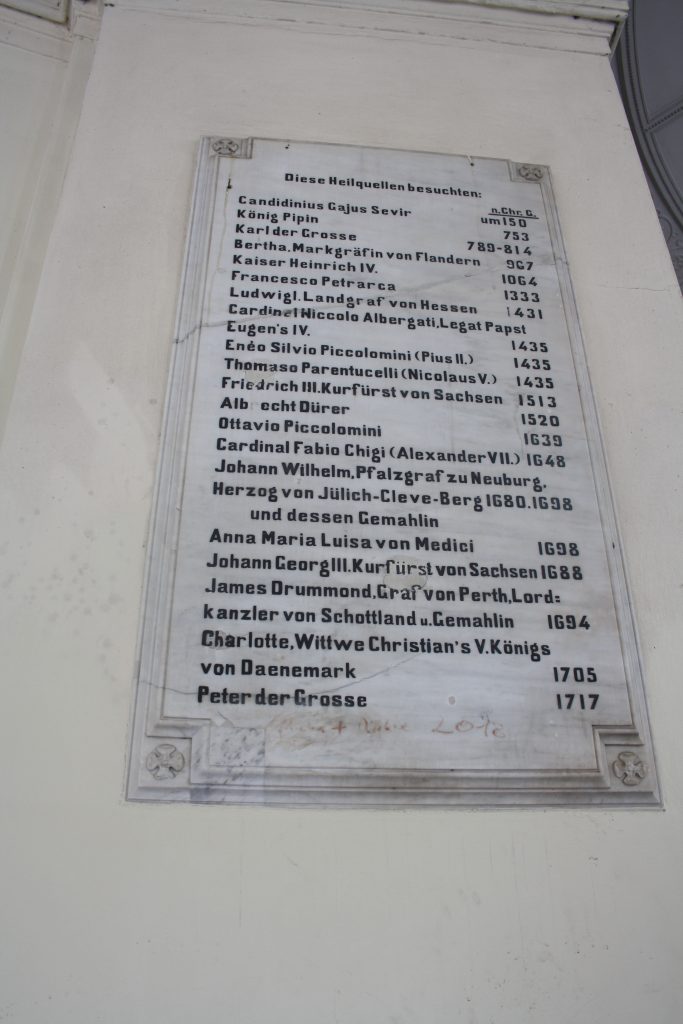 Diese Heilquellen besuchten:
n.Chr.G.
Candidinius Gajus Sevir um 150
König Pipin 753
Karl der Grosse 789-814
Bertha, Markgräfin von Flandern 967
Kaiser Heinrich IV. 1064
Francesco Petrarca 1333
Ludwig I. Landgraf von Hessen 1431
Cardinal Niccolo Albergati, Legat Papst
Eugen's IV. 1435
Eneo Silvio Piccolomini (Pius II.) 1435
Thomaso Parentucelli (Nicolaus V.) 1435
Friedrich III. Kurfürst von Sachsen 1513
Alb echt Dürer 1520
Ottavio Piccolomini 1639
Cardinal Fabio Chigi (Alexander VII.) 1648
Johann Wilhelm, Pfalzgraf zu Neuburg,
Herzog von Jülich-Cleve-Berg 1680. 1698
und dessen Gemahlin
Anna Maria Luisa von Medici 1698
Johann Georg III. Kurfürst von Sachsen 1688
James Drummond, Graf von Perth, Lord=
kanzler von Schottland u. Gemahlin 1694
Charlotte, Wittwe Christian's V. Königs
von Daenemark 1705
Peter der Grosse 1717